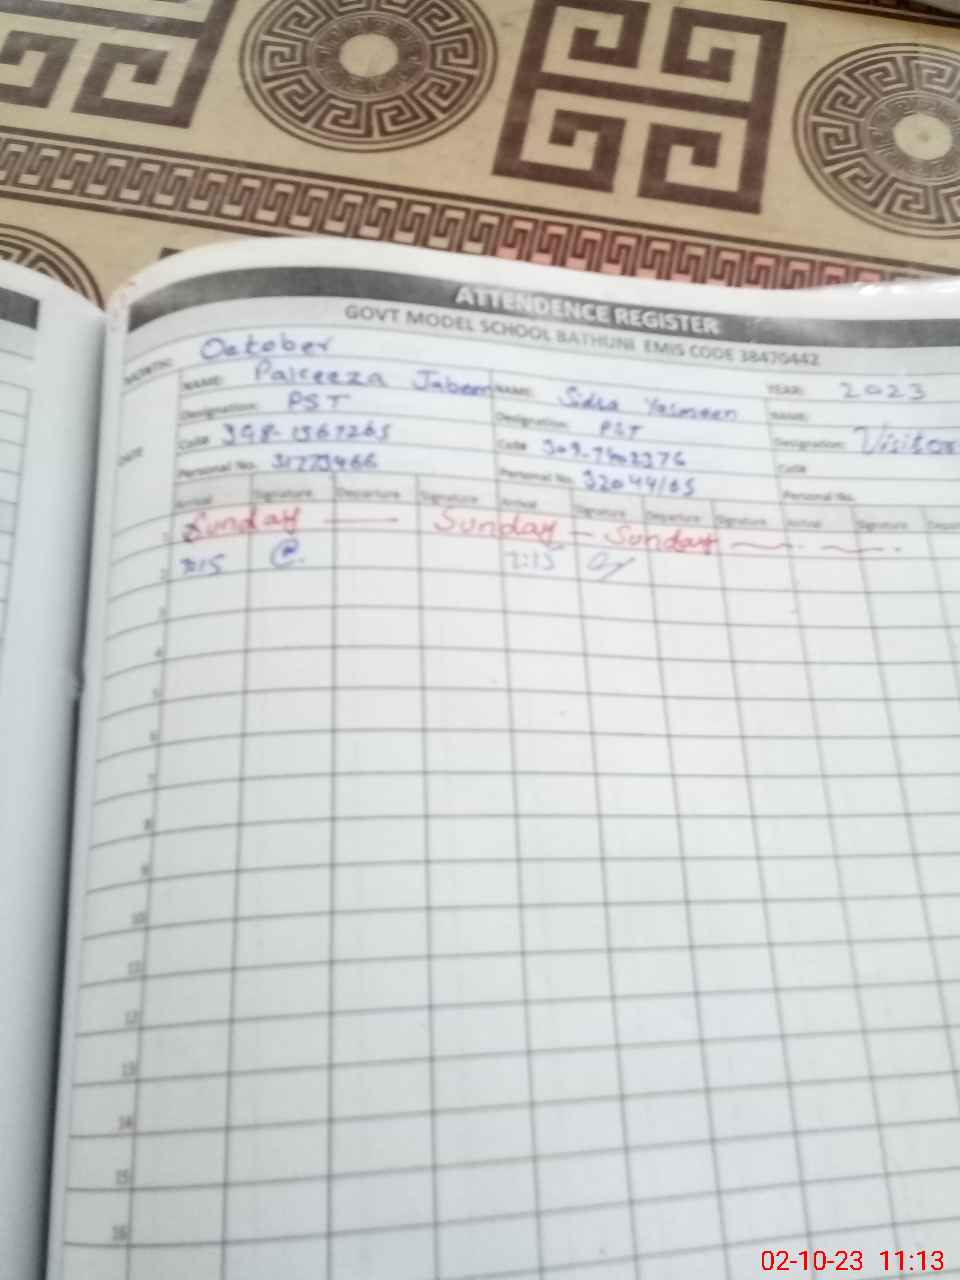 ATTENDENCE REGISTER
GOVT MODEL SCHOOL BATHUNI EMIS CODE 38470442
MONTH: October YEAR: 2023
NAME: Pakeeza Jabeen NAME: Sidra Yasmeen NAME:
Designation: PST Designation: PST Designation: Visitor
Code Code Code
Personal No. Personal No. Personal No.
DATE
Arrival Signature Departure Signature Arrival Signature Departure Signature Arrival Signature
1 Sunday — Sunday – Sunday — —
2
3
4
5
6
7
8
9
10
11
12
13
14
15
16
02-10-23 11:13